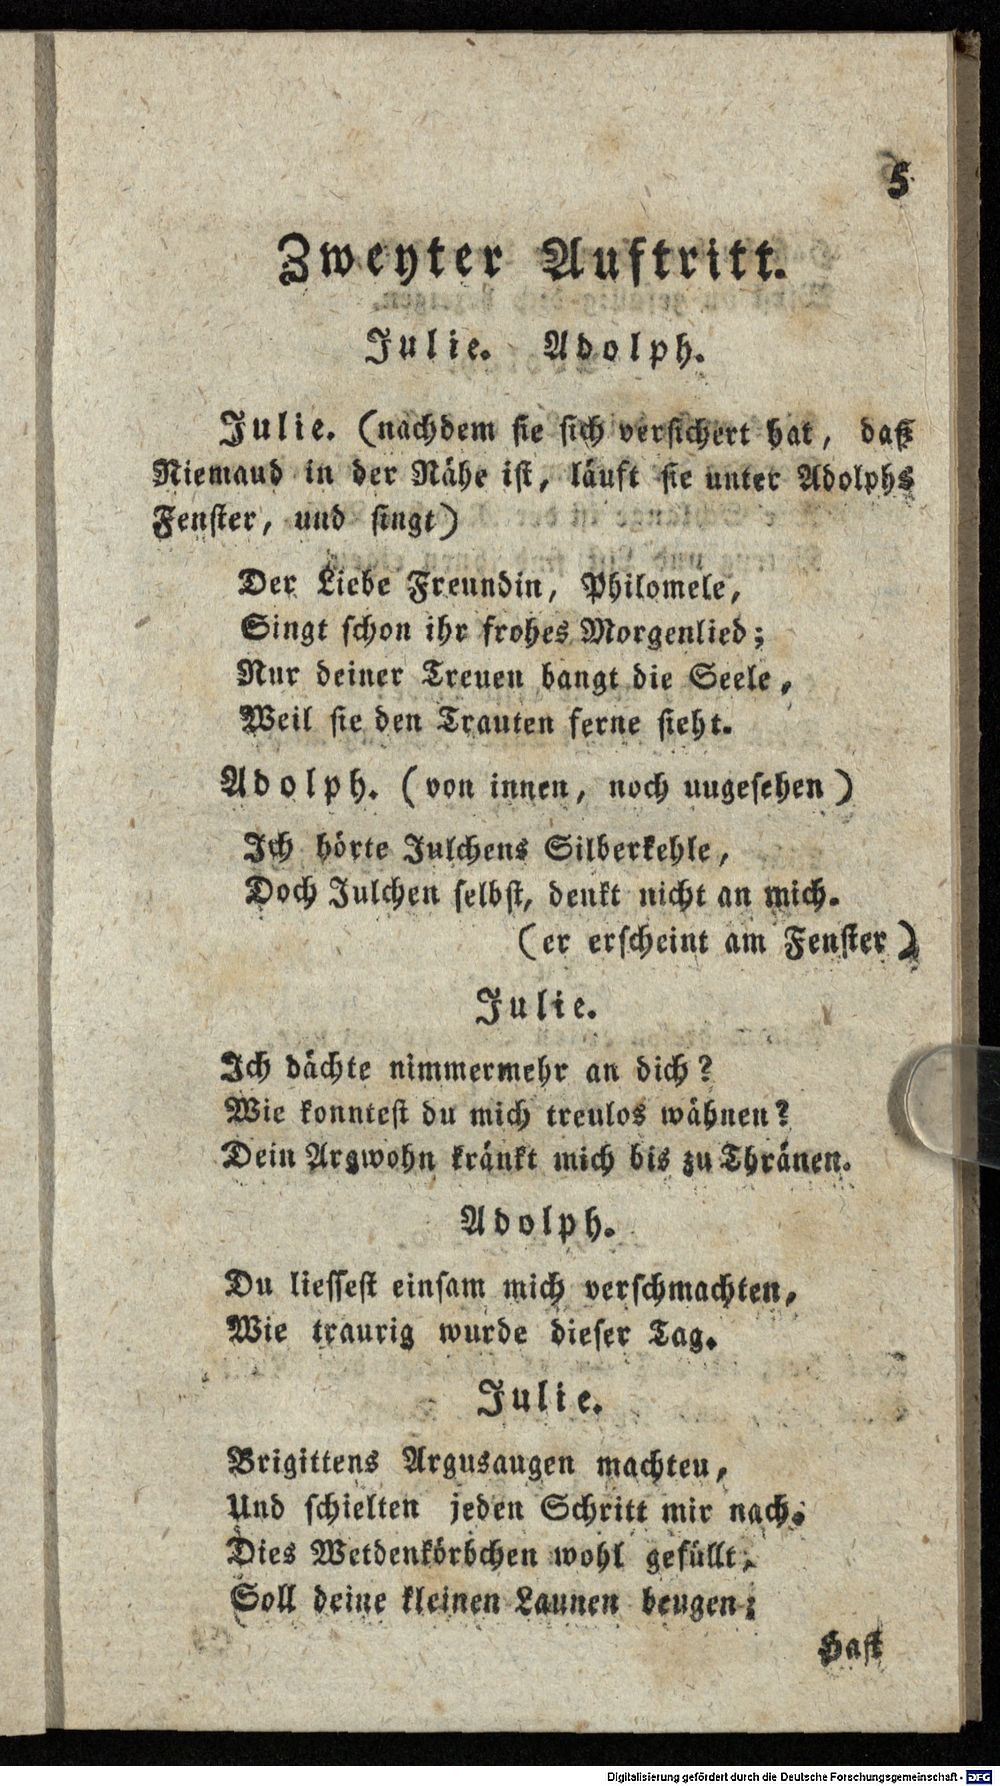 5
Zweyter Auftritt.
Julie. Adolph.
Julie. (nachdem sie sich versichert hat, daß
Niemand in der Nähe ist, läuft sie unter Adolphs
Fenster, und singt)
Der Liebe Freundin, Philomele,
Singt schon ihr frohes Morgenlied;
Nur deiner Treuen bangt die Seele,
Weil sie den Trauten ferne sieht.
Adolph. (von innen, noch ungesehen)
Ich hörte Julchens Silberkehle,
Doch Julchen selbst, denkt nicht an mich.
(er erscheint am Fenster)
Julie.
Ich dächte nimmermehr an dich?
Wie konntest du mich treulos wähnen?
Dein Argwohn kränkt mich bis zu Thränen.
Adolph.
Du liessest einsam mich verschmachten,
Wie traurig wurde dieser Tag.
Julie.
Brigittens Argusaugen machten,
Und schielten jeden Schritt mir nach.
Dies Wetdenkörbchen wohl gefüllt,
Soll deine kleinen Launen beugen;
Hast
Digitalisierung gefördert durch die Deutsche Forschungsgemeinschaft - DFG